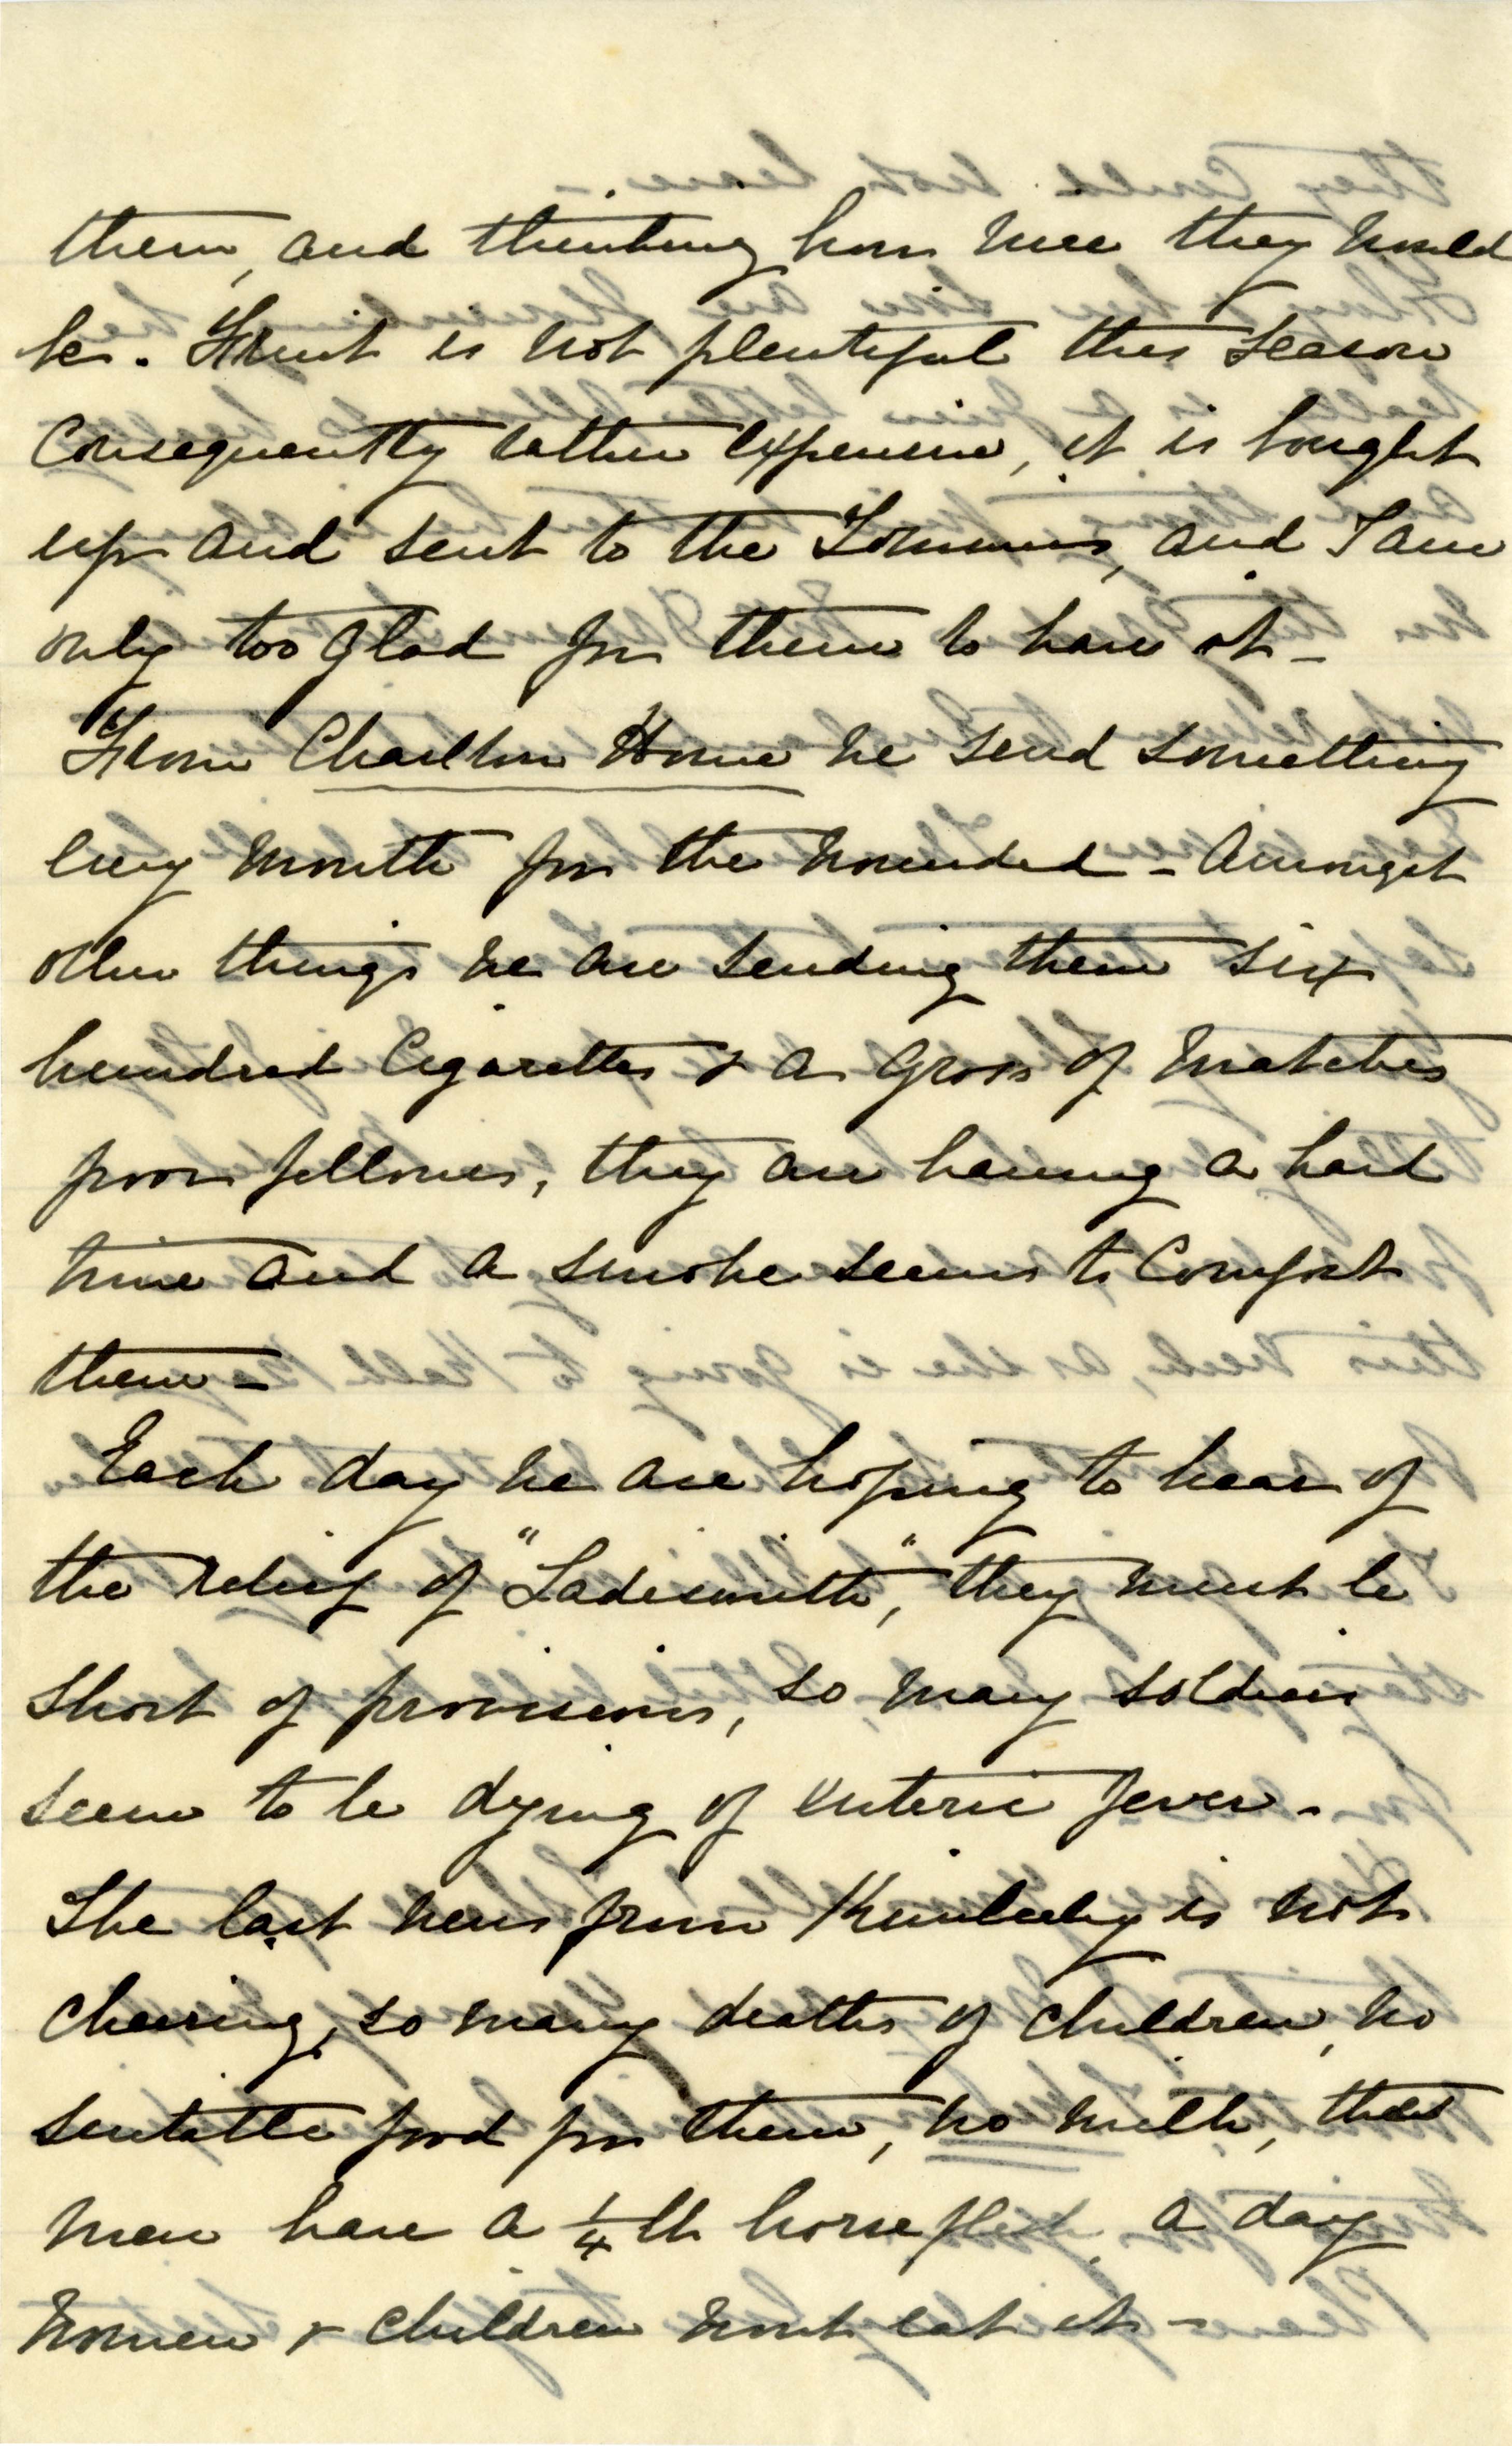 them, and thinking how nice they would
be. Fruit is not plentiful this season
consequently rather expensive, it is bought
up and sent to the Tommies, and I am
only too glad for them to have it –
From Charlton Home we send something
every month for the wounded – Amongst
other things we are sending them six
hundred Cigarettes & a gross of matches
poor fellows, they are having a hard
time and a smoke seems to comfort
them –
Each day we are hoping to hear of
the relief of "Ladismith", they must be
short of provisions, so many soldiers
seem to be dying of enteric fever –
The last news from Kimberley is not
cheering, so many deaths of children, no
suitable food for them, no milk, the
men have a 1/4 lb horse flesh a day
women & children wont eat it –